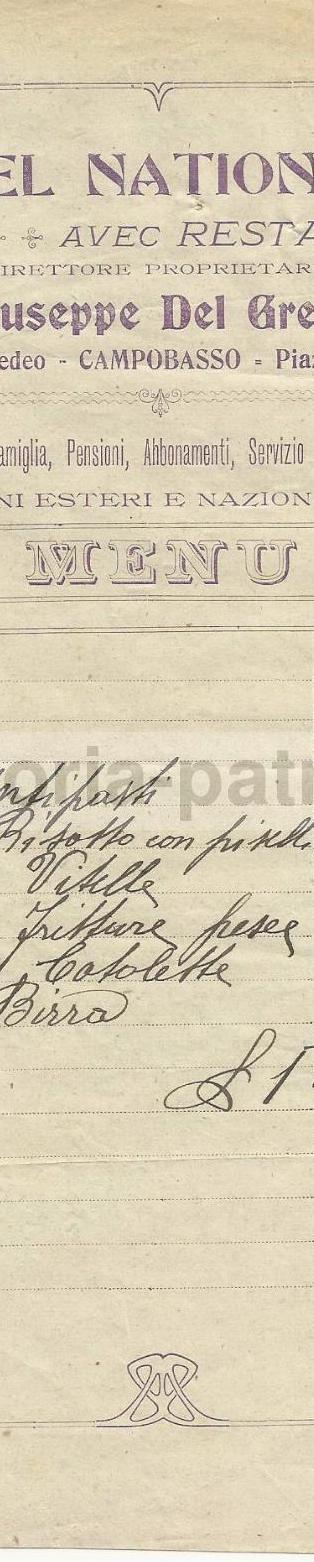 EL NATION
AVEC RESTA
IRETTORE PROPRIETAR
useppe Del Gre
edeo - CAMPOBASSO - Piaz
amiglia, Pensioni, Abbonamenti, Servizio
NI ESTERI E NAZION
MENU
oria-patr
ntipasti
Risotto con piselli
Vitella
Fritture pesce
Cotolette
Birra
£ 1